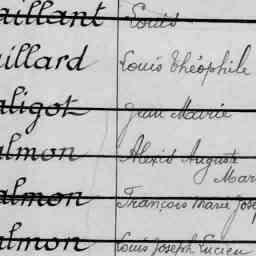 aillant Louis
aillard Louis Théophile
aligot Jean Marie
almon Alexis Auguste
Mar
almon François Marie Jose
almon Louis Joseph Lucien